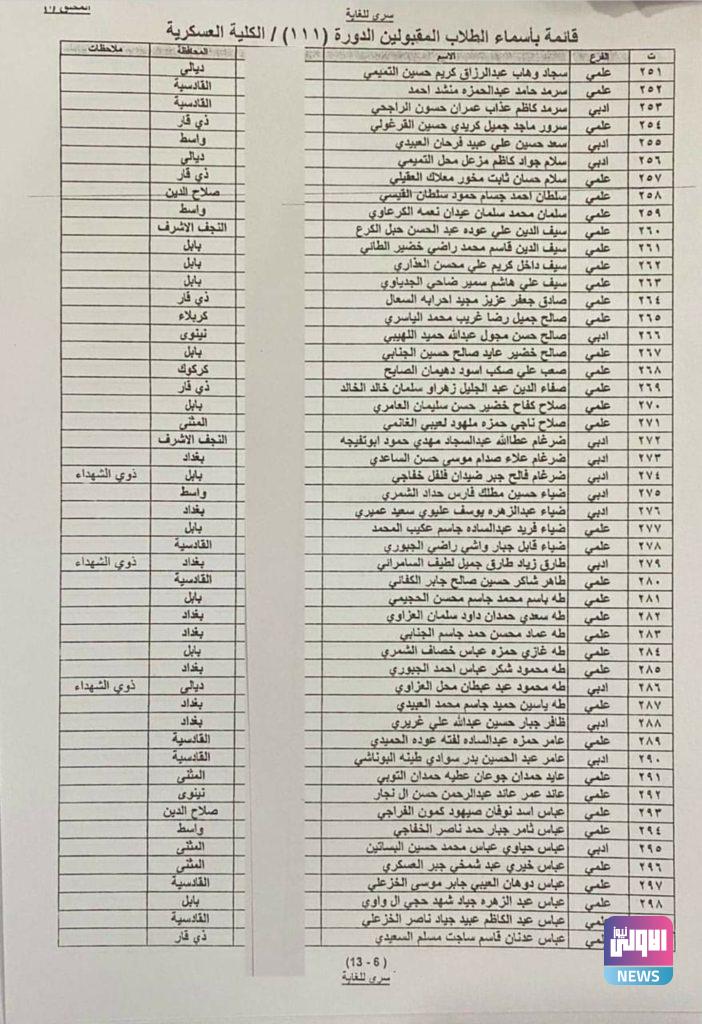 سري للغاية
قائمة بأسماء الطلاب المقبولين الدورة (١١١) / الكلية العسكرية
ت الفرع الاسم المحافظة ملاحظات
٢٥١ علمي سجاد وهاب عبدالرزاق كريم حسين التميمي ديالى
٢٥٢ علمي سرمد حامد عبدالحمزه منشد احمد القادسية
٢٥٣ ادبي سرمد كاظم عذاب عمران حسون الراجحي القادسية
٢٥٤ علمي سرور ماجد جميل كريدي حسين القرغولي ذي قار
٢٥٥ ادبي سعد حسين علي عبيد فرحان العبيدي واسط
٢٥٦ ادبي سلام جواد كاظم مزعل محل التميمي ديالى
٢٥٧ علمي سلام حسان ثابت مخور معلاك العقيلي ذي قار
٢٥٨ علمي سلطان احمد جسام حمود سلطان القيسي صلاح الدين
٢٥٩ علمي سلمان محمد سلمان عيدان نعمه الكرعاوي واسط
٢٦٠ علمي سيف الدين علي عوده عبد الحسن حبل الكرع النجف الاشرف
٢٦١ علمي سيف الدين قاسم محمد راضي خضير الطائي بابل
٢٦٢ علمي سيف داخل كريم علي محسن العذاري بابل
٢٦٣ علمي سيف علي هاشم سمير ضاحي الجدياوي بابل
٢٦٤ علمي صادق جعفر عزيز مجيد احرابه السعال ذي قار
٢٦٥ علمي صالح جميل رضا غريب محمد الياسري كربلاء
٢٦٦ ادبي صالح حسن مجول عبدالله حميد اللهيبي نينوى
٢٦٧ علمي صالح خضير عايد صالح حسين الجنابي بابل
٢٦٨ علمي صعب علي صكب اسود دهيمان الصايح كركوك
٢٦٩ علمي صفاء الدين عبد الجليل زهراو سلمان خالد الخالد ذي قار
٢٧٠ علمي صلاح كفاح خضير حسن سليمان العامري بابل
٢٧١ علمي صلاح ناجي حمزه ملهود لعيبي الغانمي المثنى
٢٧٢ ادبي ضرغام عطاالله عبدالسجاد مهدي حمود ابوتفيجه النجف الاشرف
٢٧٣ ادبي ضرغام علاء صدام موسى حسن الساعدي بغداد
٢٧٤ ادبي ضرغام فالح جبر ضيدان فلفل خفاجي بابل ذوي الشهداء
٢٧٥ ادبي ضياء حسين مطلك فارس حداد الشمري واسط
٢٧٦ ادبي ضياء عبدالزهره يوسف عليوي سعيد عميري بغداد
٢٧٧ علمي ضياء فريد عبدالساده جاسم عكيب المحمد بابل
٢٧٨ علمي ضياء قابل جبار واشي راضي الجبوري القادسية
٢٧٩ ادبي طارق زياد طارق جميل لطيف السامرائي بغداد ذوي الشهداء
٢٨٠ علمي طاهر شاكر حسين صالح جابر الكفائي القادسية
٢٨١ علمي طه باسم محمد جاسم محسن الحجيمي بابل
٢٨٢ علمي طه سعدي حمدان داود سلمان العزاوي بغداد
٢٨٣ علمي طه عماد محسن حمد جاسم الجنابي بغداد
٢٨٤ علمي طه غازي حمزه عباس خصاف الشمري بابل
٢٨٥ علمي طه محمود شكر عباس احمد الجبوري بغداد
٢٨٦ ادبي طه محمود عبد عبطان محل العزاوي ديالى ذوي الشهداء
٢٨٧ علمي طه ياسين حميد جاسم محمد العبيدي بغداد
٢٨٨ ادبي ظافر جبار حسين عبدالله علي غريري بغداد
٢٨٩ علمي عامر حمزه عبدالساده لفته عوده الحميدي القادسية
٢٩٠ ادبي عامر عبد الحسين بدر سوادي طينه البوناشي القادسية
٢٩١ علمي عايد حمدان جوعان عطيه حمدان التوبي المثنى
٢٩٢ علمي عائد عمر عائد عبدالرحمن حسن ال نجار نينوى
٢٩٣ علمي عباس اسد نوفان صيهود كمون الفراجي صلاح الدين
٢٩٤ علمي عباس ثامر جبار حمد ناصر الخفاجي واسط
٢٩٥ ادبي عباس حياوي عباس محمد حسين البساتين المثنى
٢٩٦ علمي عباس خيري عبد شمخي جبر العسكري المثنى
٢٩٧ علمي عباس دوهان العيبي جابر موسى الخزعلي القادسية
٢٩٨ علمي عباس عبد الزهره جياد شهد حجي ال واوي بابل
عباس عبد الكاظم عبيد جياد ناصر الخزعلي القادسية
عباس عدنان قاسم ساجت مسلم السعيدي ذي قار
(13 - 6)
سري للغاية
الاولى نيوز
NEWS